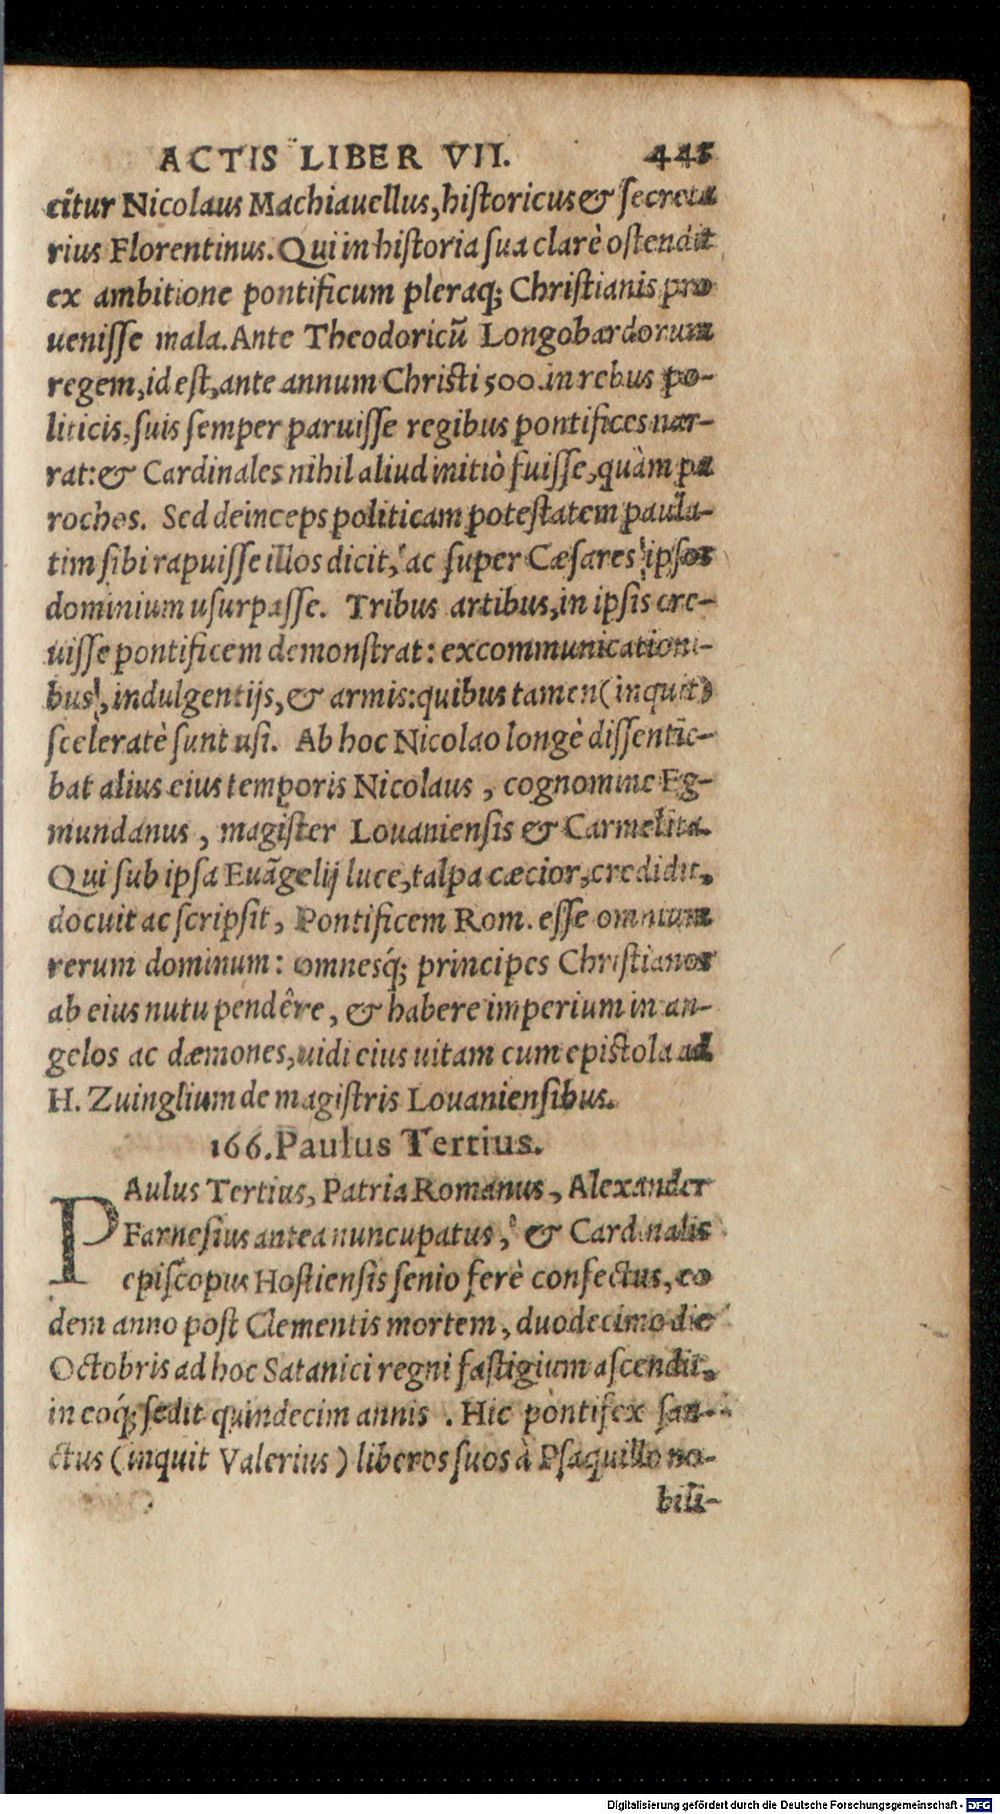 ACTIS LIBER VII. 445
citur Nicolaus Machiauellus, historicus & secreta
rius Florentinus. Qui in historia sua clarè ostendit
ex ambitione pontificum pleraq; Christianis pro
uenisse mala. Ante Theodoricū Longobardorum
regem, id est, ante annum Christi 500. in rebus po-
liticis, suis semper paruisse regibus pontifices nar-
rat: & Cardinales nihil aliud initiò fuisse, quàm pa
rochos. Sed deinceps politicam potestatem paula-
tim sibi rapuisse illos dicit, ac super Cæsares ipsos
dominium usurpasse. Tribus artibus, in ipsis cre-
uisse pontificem demonstrat: excommunicationi-
bus, indulgentijs, & armis: quibus tamen (inquit)
sceleratè sunt usi. Ab hoc Nicolao longè dissentie-
bat alius eius temporis Nicolaus, cognomine Eg-
mundanus, magister Louaniensis & Carmelita.
Qui sub ipsa Euāgelij luce, talpa cæcior, credidit,
docuit ac scripsit, Pontificem Rom. esse omnium
rerum dominum: omnesq́; principes Christianos
ab eius nutu pendêre, & habere imperium in an-
gelos ac dæmones, uidi eius uitam cum epistola ad
H. Zuinglium de magistris Louaniensibus.
166. Paulus Tertius.
PAulus Tertius, Patria Romanus, Alexander
Farnesius antea nuncupatus, & Cardinalis
episcopus Hostiensis senio ferè confectus, eo
dem anno post Clementis mortem, duodecimo die
Octobris ad hoc Satanici regni fastigium ascendit,
in eoq́; sedit quindecim annis. Hic pontifex san-
ctus (inquit Valerius) liberos suos à Psaquillo no-
bili-
Digitalisierung gefördert durch die Deutsche Forschungsgemeinschaft - DFG